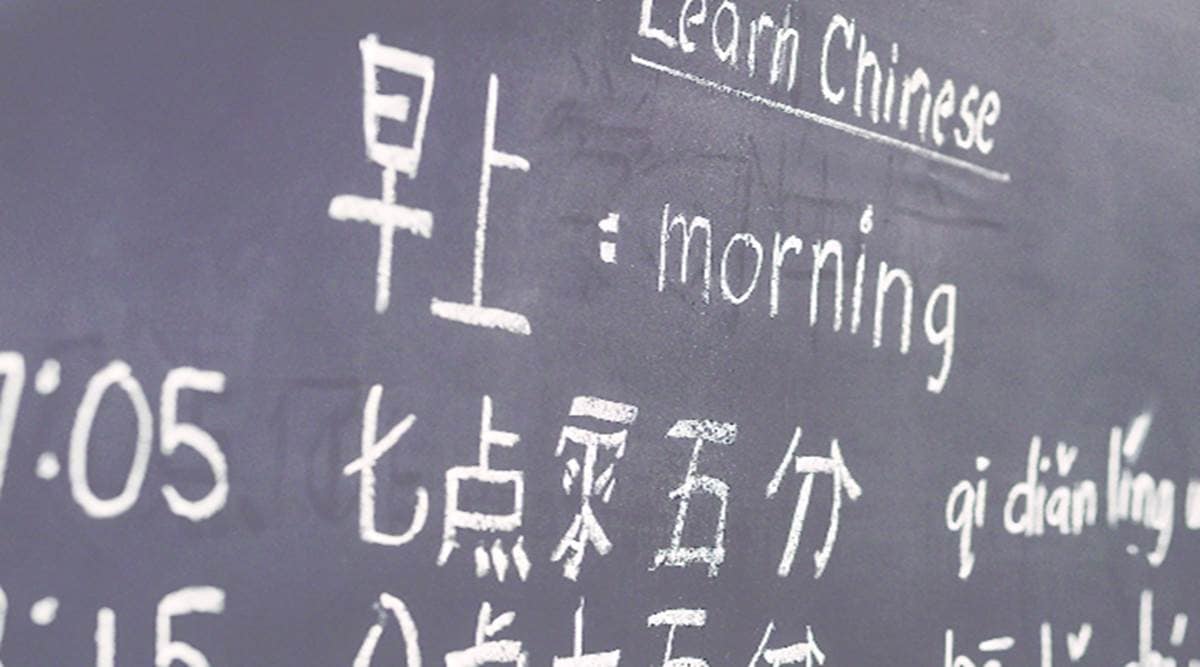 Learn Chinese
早上 : morning
7:05 七点零五分 qi diǎn líng
:15 八点十五分 bā